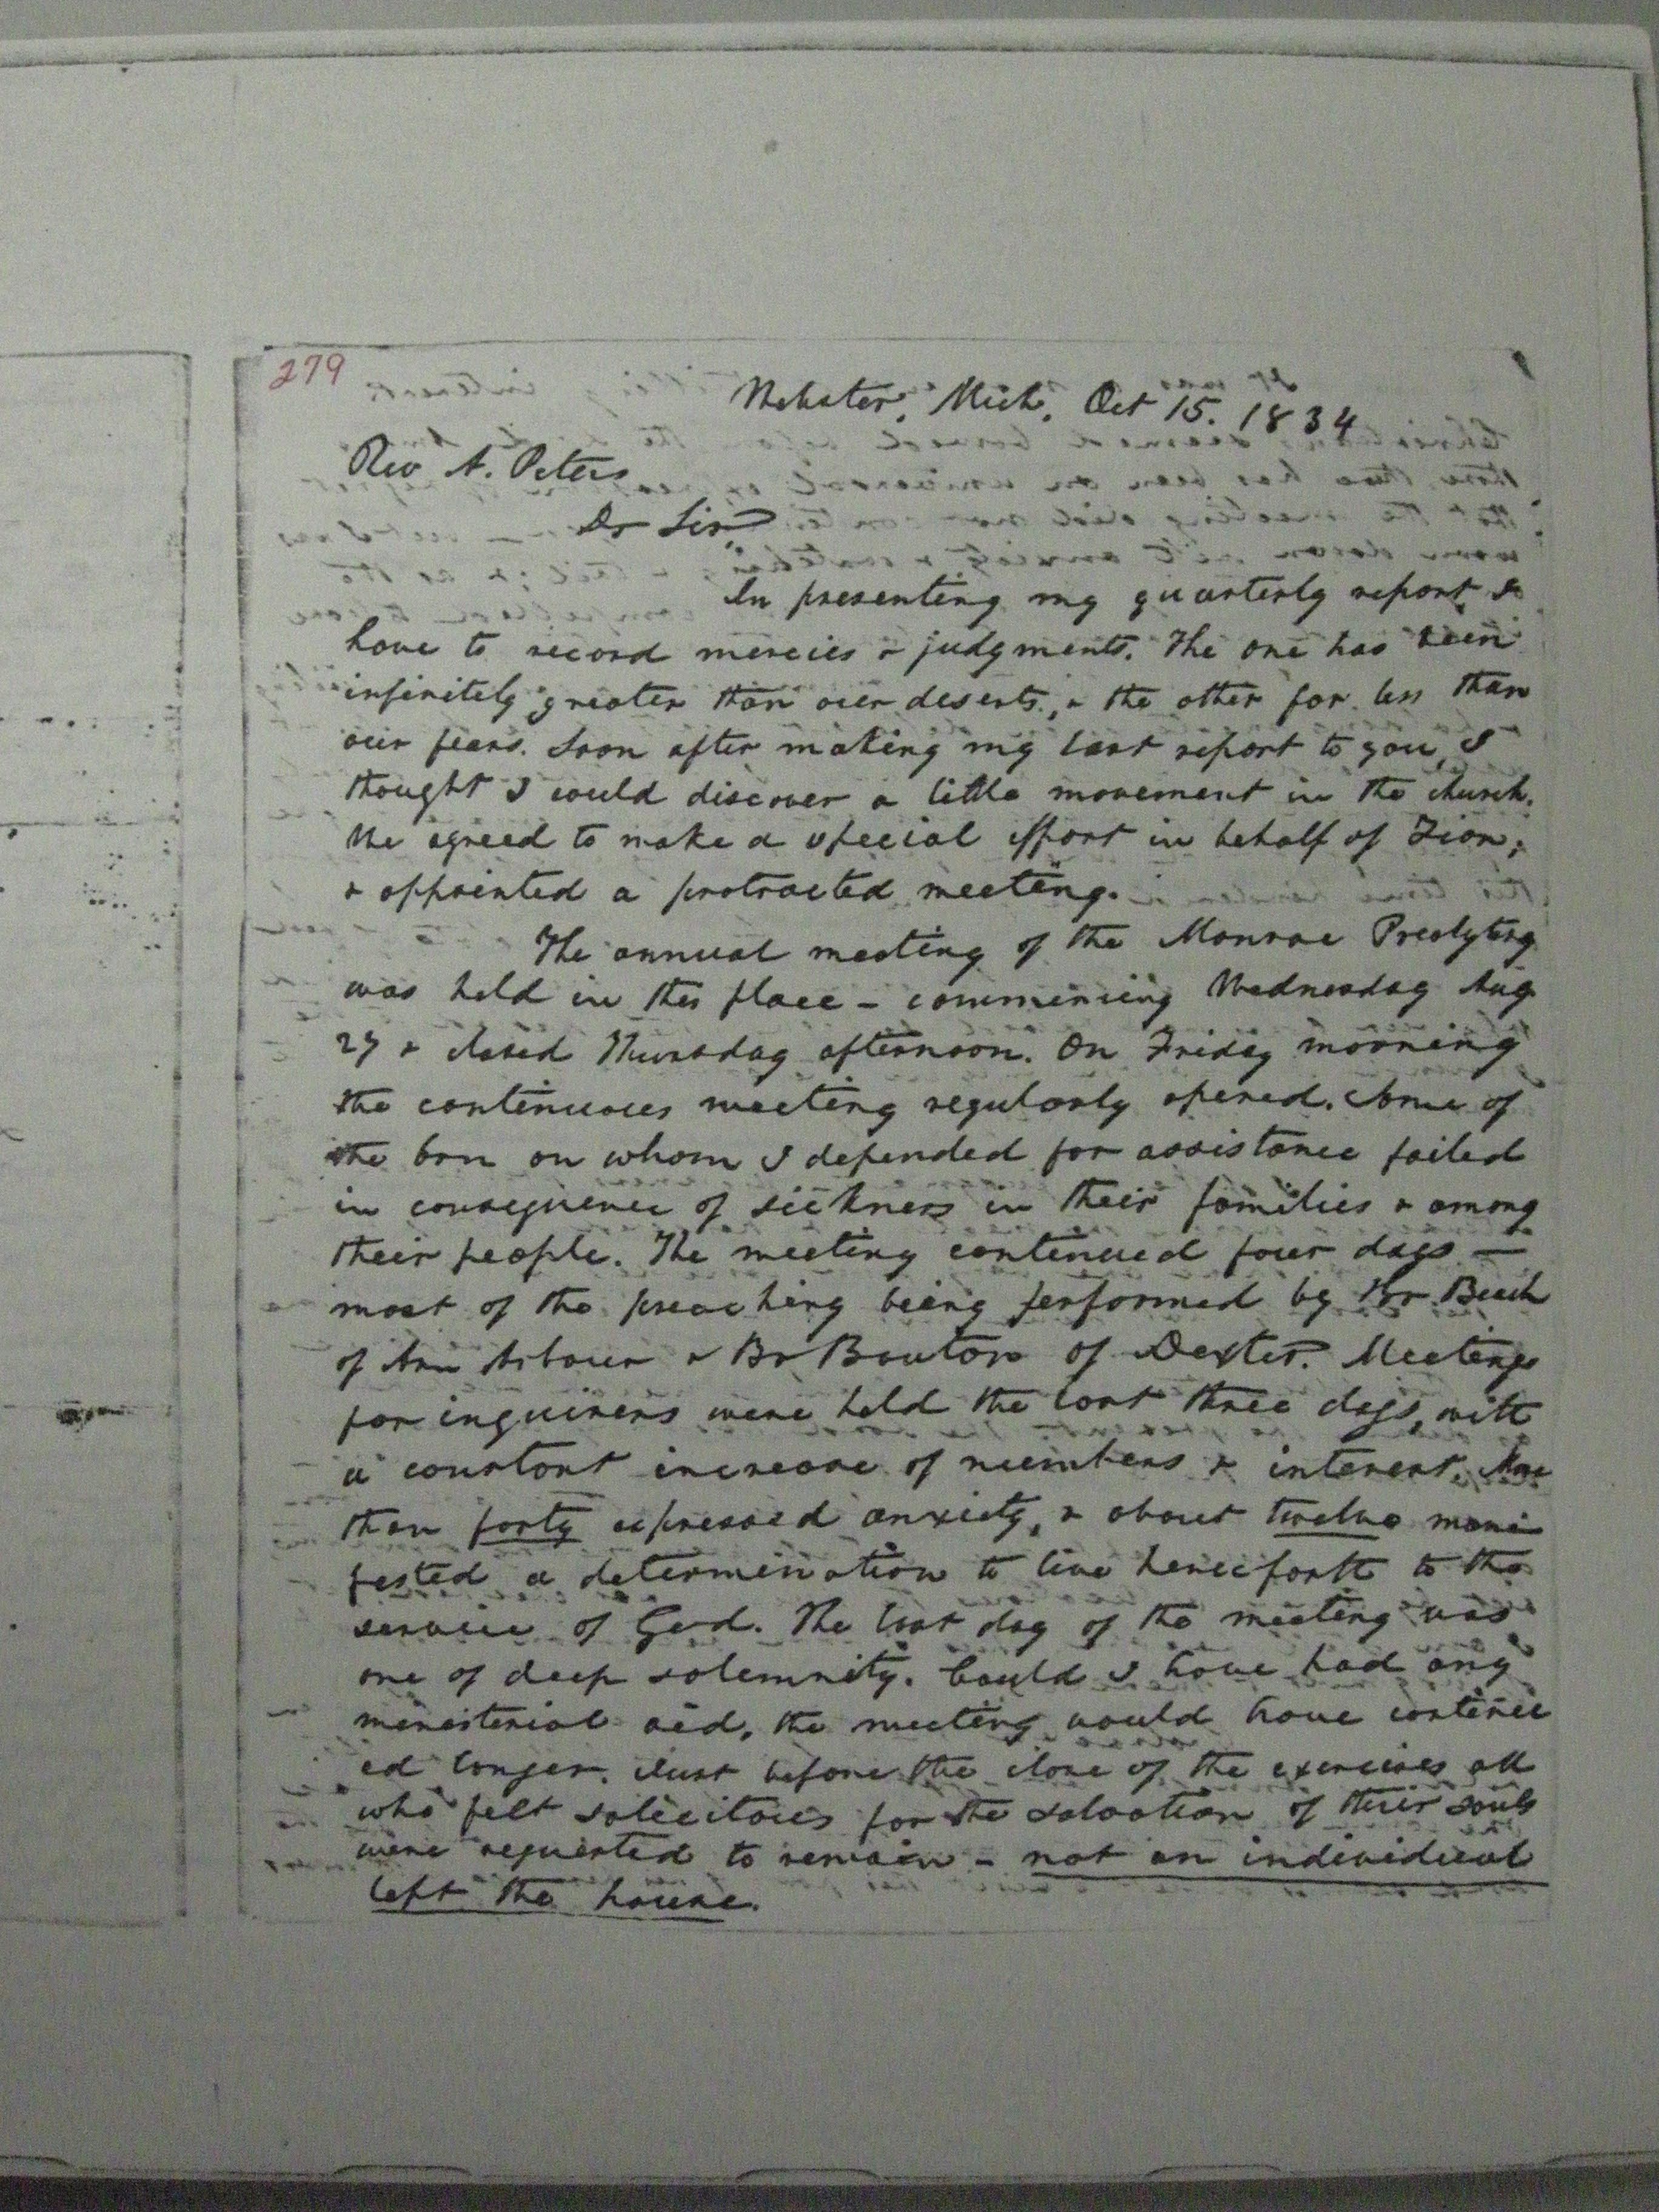 279
Webster, Mich, Oct 15. 1834
Rev A. Peters
Dr Sir
In presenting my quarterly report I
have to record mercies & judgments. The one has been
infinitely greater than our deserts, & the other far less than
our fears. Soon after making my last report to you, I
thought I could discover a little movement in the church.
We agreed to make a special effort in behalf of Zion,
& appointed a protracted meeting.
The annual meeting of the Monroe Presbytery
was held in this place – commencing Wednesday Aug
27 & closed Thursday afternoon. On Friday morning
the continuous meeting regularly opened. Some of
the brn on whom I depended for assistance failed
in consequence of sickness in their families & among
their people. The meeting continued four days –
most of the preaching being performed by Br Beach
of Ann Arbour & Br Bouton of Dexter. Meetings
for inquirers were held the last three days, with
a constant increase of numbers & interest. More
than forty expressed anxiety, & about twelve mani
fested a determination to live henceforth to the
service of God. The last day of the meeting was
one of deep solemnity. Could I have had any
ministerial aid, the meeting would have continu
ed longer. Just before the close of the exercises all
who felt solicitous for the salvation of their souls
were requested to remain – not an individual
left the house.